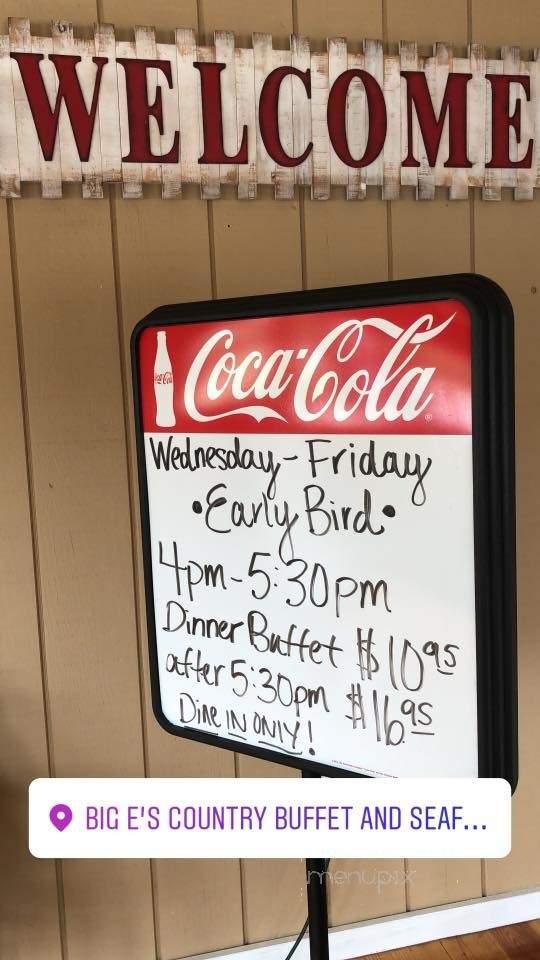 WELCOME
Coca-Cola
Wednesday - Friday
•Early Bird•
4pm-5:30pm
Dinner Buffet $10.95
after 5:30pm $16.95
DINE IN ONLY!
BIG E'S COUNTRY BUFFET AND SEAF...
menupix